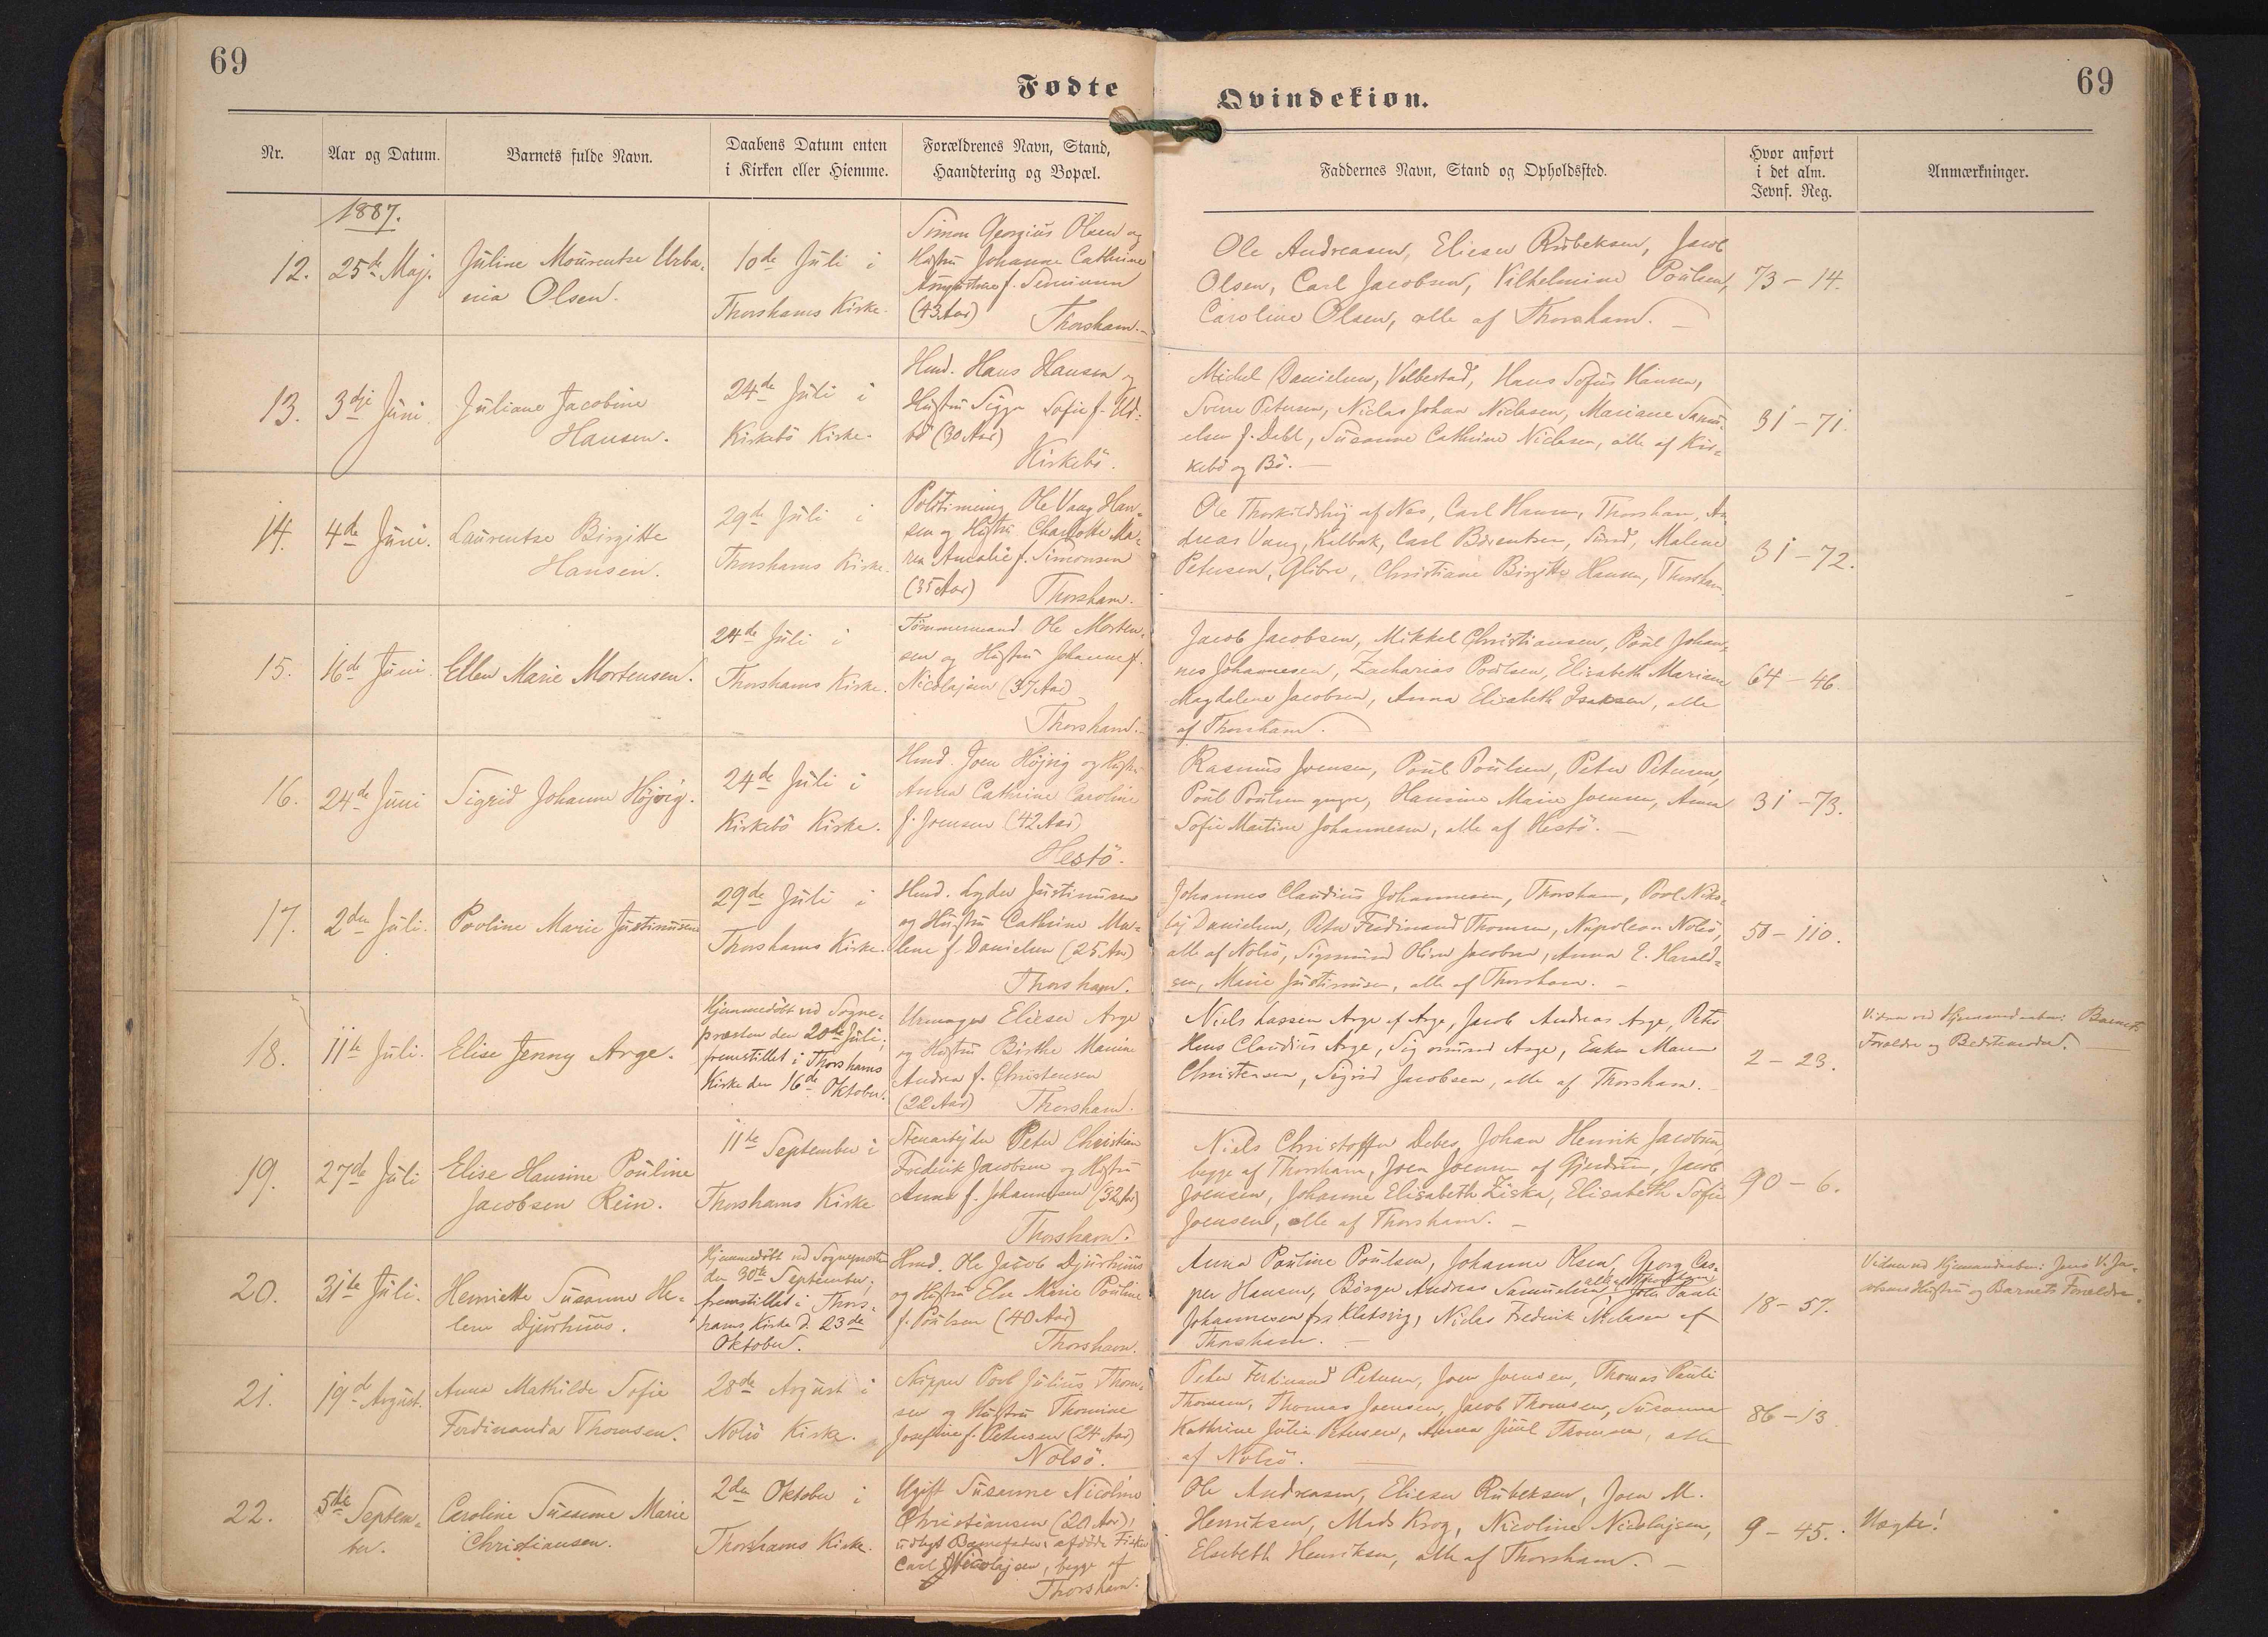 69
69
Fødte
Qvindekiøn.
Nr.
Aar og Datum.
Barnets fulde Navn.
Daabens Datum enten
i Kirken eller Hiemme.
Forældrenes Navn, Stand,
Haandtering og Bopæl.
Faddernes Navn, Stand og Opholdssted.
Hvor anført
i det alm.
Jevnf. Reg.
Anmærkninger.
1887.
12.
25de Maj.
Juline Mourentse Urba-
nia Olsen.
10de Juli i
Thorshavns Kirke.
Simon Georgius Olsen og
Hustru Johanne Cathrine
f.
(43 Aar)
Thorshavn.
Ole Andreasen, Elieser Rubeksen, Jacob
Olsen, Carl Jacobsen, Vilhelmine Poulsen,
Caroline Olsen, alle af Thorshavn.
73 - 14.
13.
3dje Juni
Juliane Jacobine
Hansen.
24de Juli i
Kirkebö Kirke.
Hmd. Hans Hansen og
Hustru Sigga Sofie f.
(30 Aar)
Kirkebö.
Michel Danielsen, Velbestad, Hans Sofus Hansen,
Petersen, Niclas Johan Niclasen, Mariane Samu-
elsen f. Debl, Susanne Cathrine Niclasen, alle af Kir-
kebö og Bö.
31 - 71.
14.
4de Juni.
Laurentse Birgitte
Hansen.
29de Juli i
Thorshavns Kirke.
Ole Vaag Han-
sen og Hustru Charlotte Ma-
ren Amalie f. Simonsen
(35 Aar)
Thorshavn.
Ole af Nes, Carl Hansen, Thorshavn, An-
dreas Vang, Kalbak, Carl Bärentsen, Sund, Malene
Petersen, Glibre, Christiane Birgitte Hansen, Thorshavn
31 - 72.
15.
16de Juni.
Ellen Marie Mortensen.
24de Juli i
Thorshavns Kirke.
Tömmermand Ole Morten-
sen og Hustru Johanne f.
Nicolajsen (37 Aar)
Thorshavn.
Jacob Jacobsen, Mikkel Christiansen, Poul Johan-
nes Johannesen, Zacharias Poulsen, Elisabeth Mariane
Magdalene Jacobsen, Anna Elisabeth Isaksen, alle
af Thorshavn.
64 - 46.
16.
24de Juni
Sigrid Johanne Höjvig.
24de Juli i
Kirkebö Kirke.
Hmd. Joen Höjvig og Hustru
Anna Cathrine Caroline
f. Joensen (42 Aar)
Hestö.
Rasmus Joensen, Poul Poulsen, Peter Petersen,
Poul Poulsen yngre, Hansine Marie Joensen, Anna
Sofie Martine Johannesen, alle af Hestö.
31 - 73.
17.
2den Juli.
Povline Marie Justinusen
29de Juli i
Thorshavns Kirke.
Hmd. Lyder Justinusen
og Hustru Cathrine Ma-
lene f. Danielsen (25 Aar)
Thorshavn.
Johannes Claudius Johannesen, Thorshavn, Povl Niko-
laj Danielsen, Peter Ferdinand Thomsen, Napoleon Nolsö,
alle af Nolsö, Sigmund Oliver Jacobsen, Anna E. Harald-
sen, Marie Justinusen, alle af Thorshavn.
50 - 110.
18.
11te Juli.
Elise Jenny Arge.
Hjemmedöbt ved Sogne-
præsten den 20de Juli;
fremstillet i Thorshavns
Kirke den 16de Oktober.
Urmager Elieser Arge
og Hustru Birthe Marine
Andrea f. Christensen
(22 Aar) Thorshavn.
Niels Lassen Arge af Arge, Jacob Andreas Arge, Peter
Hans Claudius Arge, Sigmund Arge, Enke Maren
Christensen, Sigrid Jacobsen, alle af Thorshavn.
2 - 23.
Vidner ved Hjemmedaaben: Barnets
Forældre og Bedstemoder.
19.
27de Juli
Elise Hansine Pouline
Jacobsen Rein.
11te September i
Thorshavns Kirke
Stenarbejder Peter Christian
Frederik Jacobsen og Hustru
Anna f. Johannesen (32 Aar)
Thorshavn.
Niels Christoffer Debes, Johan Henrik Jacobsen,
begge af Thorshavn, Joen Joensen af Gjerdum, Jacob
Joensen, Johanne Elisabeth Ziska, Elisabeth Sofie
Joensen, alle af Thorshavn.
90 - 6.
20.
31te Juli.
Henriette Susanne He-
lene Djurhuus.
Hjemmedöbt ved Sognepræsten
den 30te September;
fremstillet i Thors-
havns Kirke d. 23de
Oktober.
Hmd. Ole Jacob Djurhuus
og Hustru Else Marie Pouline
f. Poulsen (40 Aar)
Thorshavn.
Anna Pauline Poulsen, Johanne Olsen, Georg Cas-
per Hansen, Börge Andreas Samuelsen, alle af Thorshavn, John Pauli
Johannesen fra Klaksvig, Niclas Frederik Niclasen af
Thorshavn.
18 - 57.
Vidner ved Hjemmedaaben: Jens V. Ja-
cobsens Hustru og Barnets Forældre.
21.
19de Avgust.
Anna Mathilde Sofie
Ferdinanda Thomsen.
28de Avgust i
Nolsö Kirke.
Skipper Povl Julius Thom-
sen og Hustru Thomine
Josefine f. Petersen (24 Aar)
Nolsö.
Peter Ferdinand Petersen, Joen Joensen, Thomas Pauli
Thomsen, Thomas Joensen, Jacob Thomsen, Susanna
Kathrine Julie Petersen, Anna Juul Thomsen, alle
af Nolsö.
86 - 13.
22.
5te Septem-
ber.
Caroline Susanne Marie
Christiansen.
2den Oktober i
Thorshavns Kirke.
Ugift Susanne Nicoline
Christiansen (20 Aar);
udlagt Barnefader: afdöde Fisker
Carl Nicolajsen, begge af
Thorshavn.
Ole Andreasen, Elieser Rubeksen, Joen M.
Henriksen, Mads Krog, Nicoline Nicolajsen,
Elsebeth Henriksen, alle af Thorshavn.
9 - 45.
Uægte!